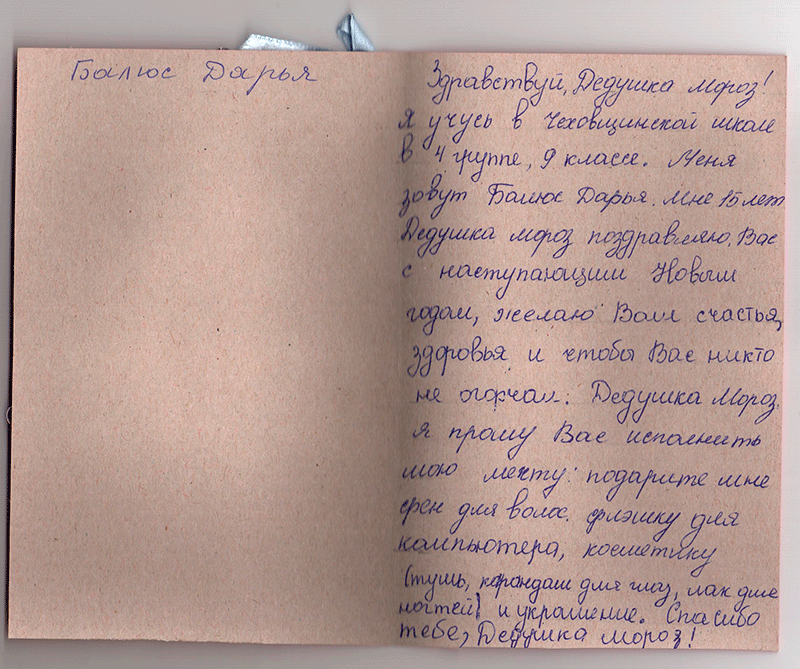 Балюс Дарья
Здравствуй, Дедушка Мороз!
Я учусь в Чеховщинской школе
в 4 группе, 9 классе. Меня
зовут Балюс Дарья. Мне 15 лет
Дедушка Мороз поздравляю Вас
с наступающим Новым
годом, желаю Вам счастья,
здоровья и чтобы Вас никто
не огорчал. Дедушка Мороз
я прошу Вас исполнить
мою мечту: подарите мне
фен для волос, флэшку для
компьютера, косметику
(тушь, карандаш для глаз, лак для
ногтей) и украшение. Спасибо
тебе, Дедушка Мороз!